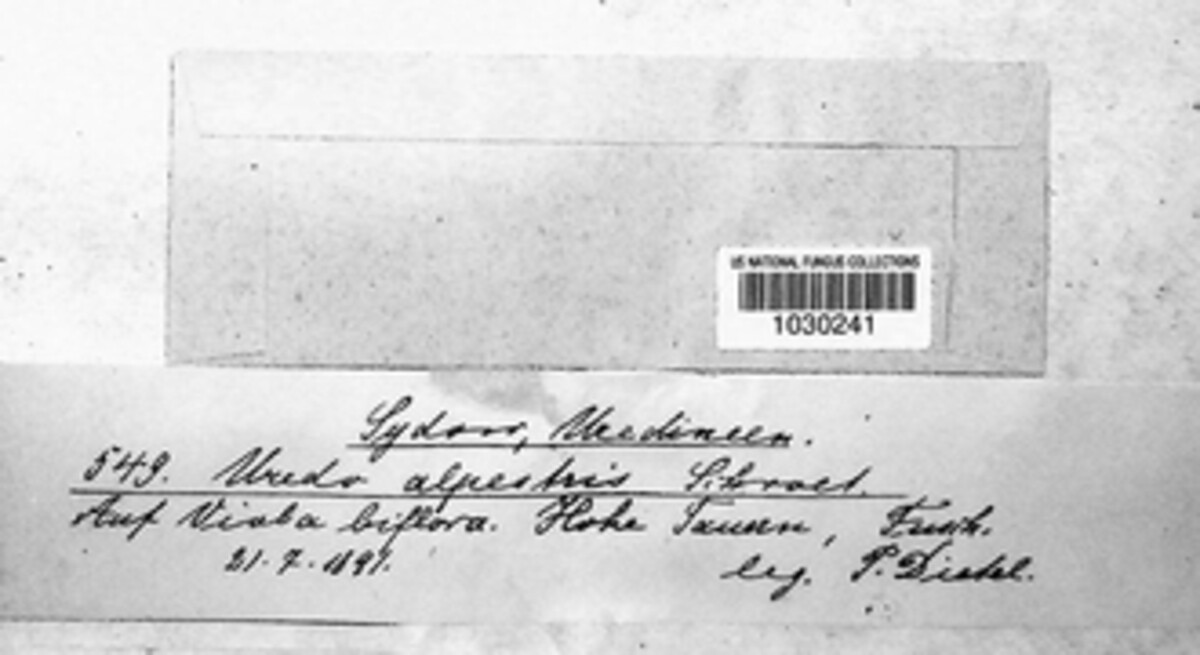 US NATIONAL FUNGUS COLLECTIONS
1030241
Sydow, Uredineen.
549. Uredo alpestris Schroet.
Auf Viola biflora. Hohe Tauern, Fusch.
21.7.1891.
leg. P. Dietel.